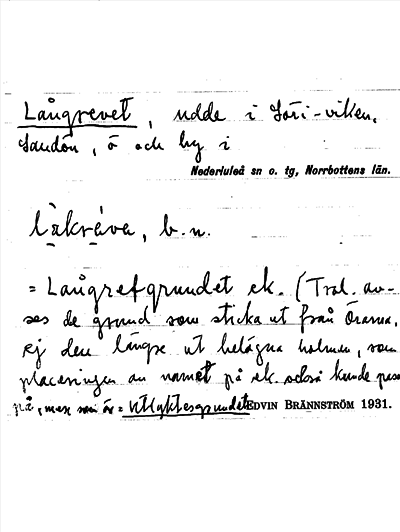 Långrevet, udde i Söri-viken,
Sandön, ö och by i
Nederluleå sn o. tg, Norrbottens län.
làkrǻva, b.n.
= Långrefgrundet ek. (Trol. av-
ses de grund som sticka ut från Örarna,
ej den längre ut belägna holmen, som
placeringen av namnet på ek. också kunde passa
på, men som är = Utlyktesgrundet
EDVIN BRÄNNSTRÖM 1931.